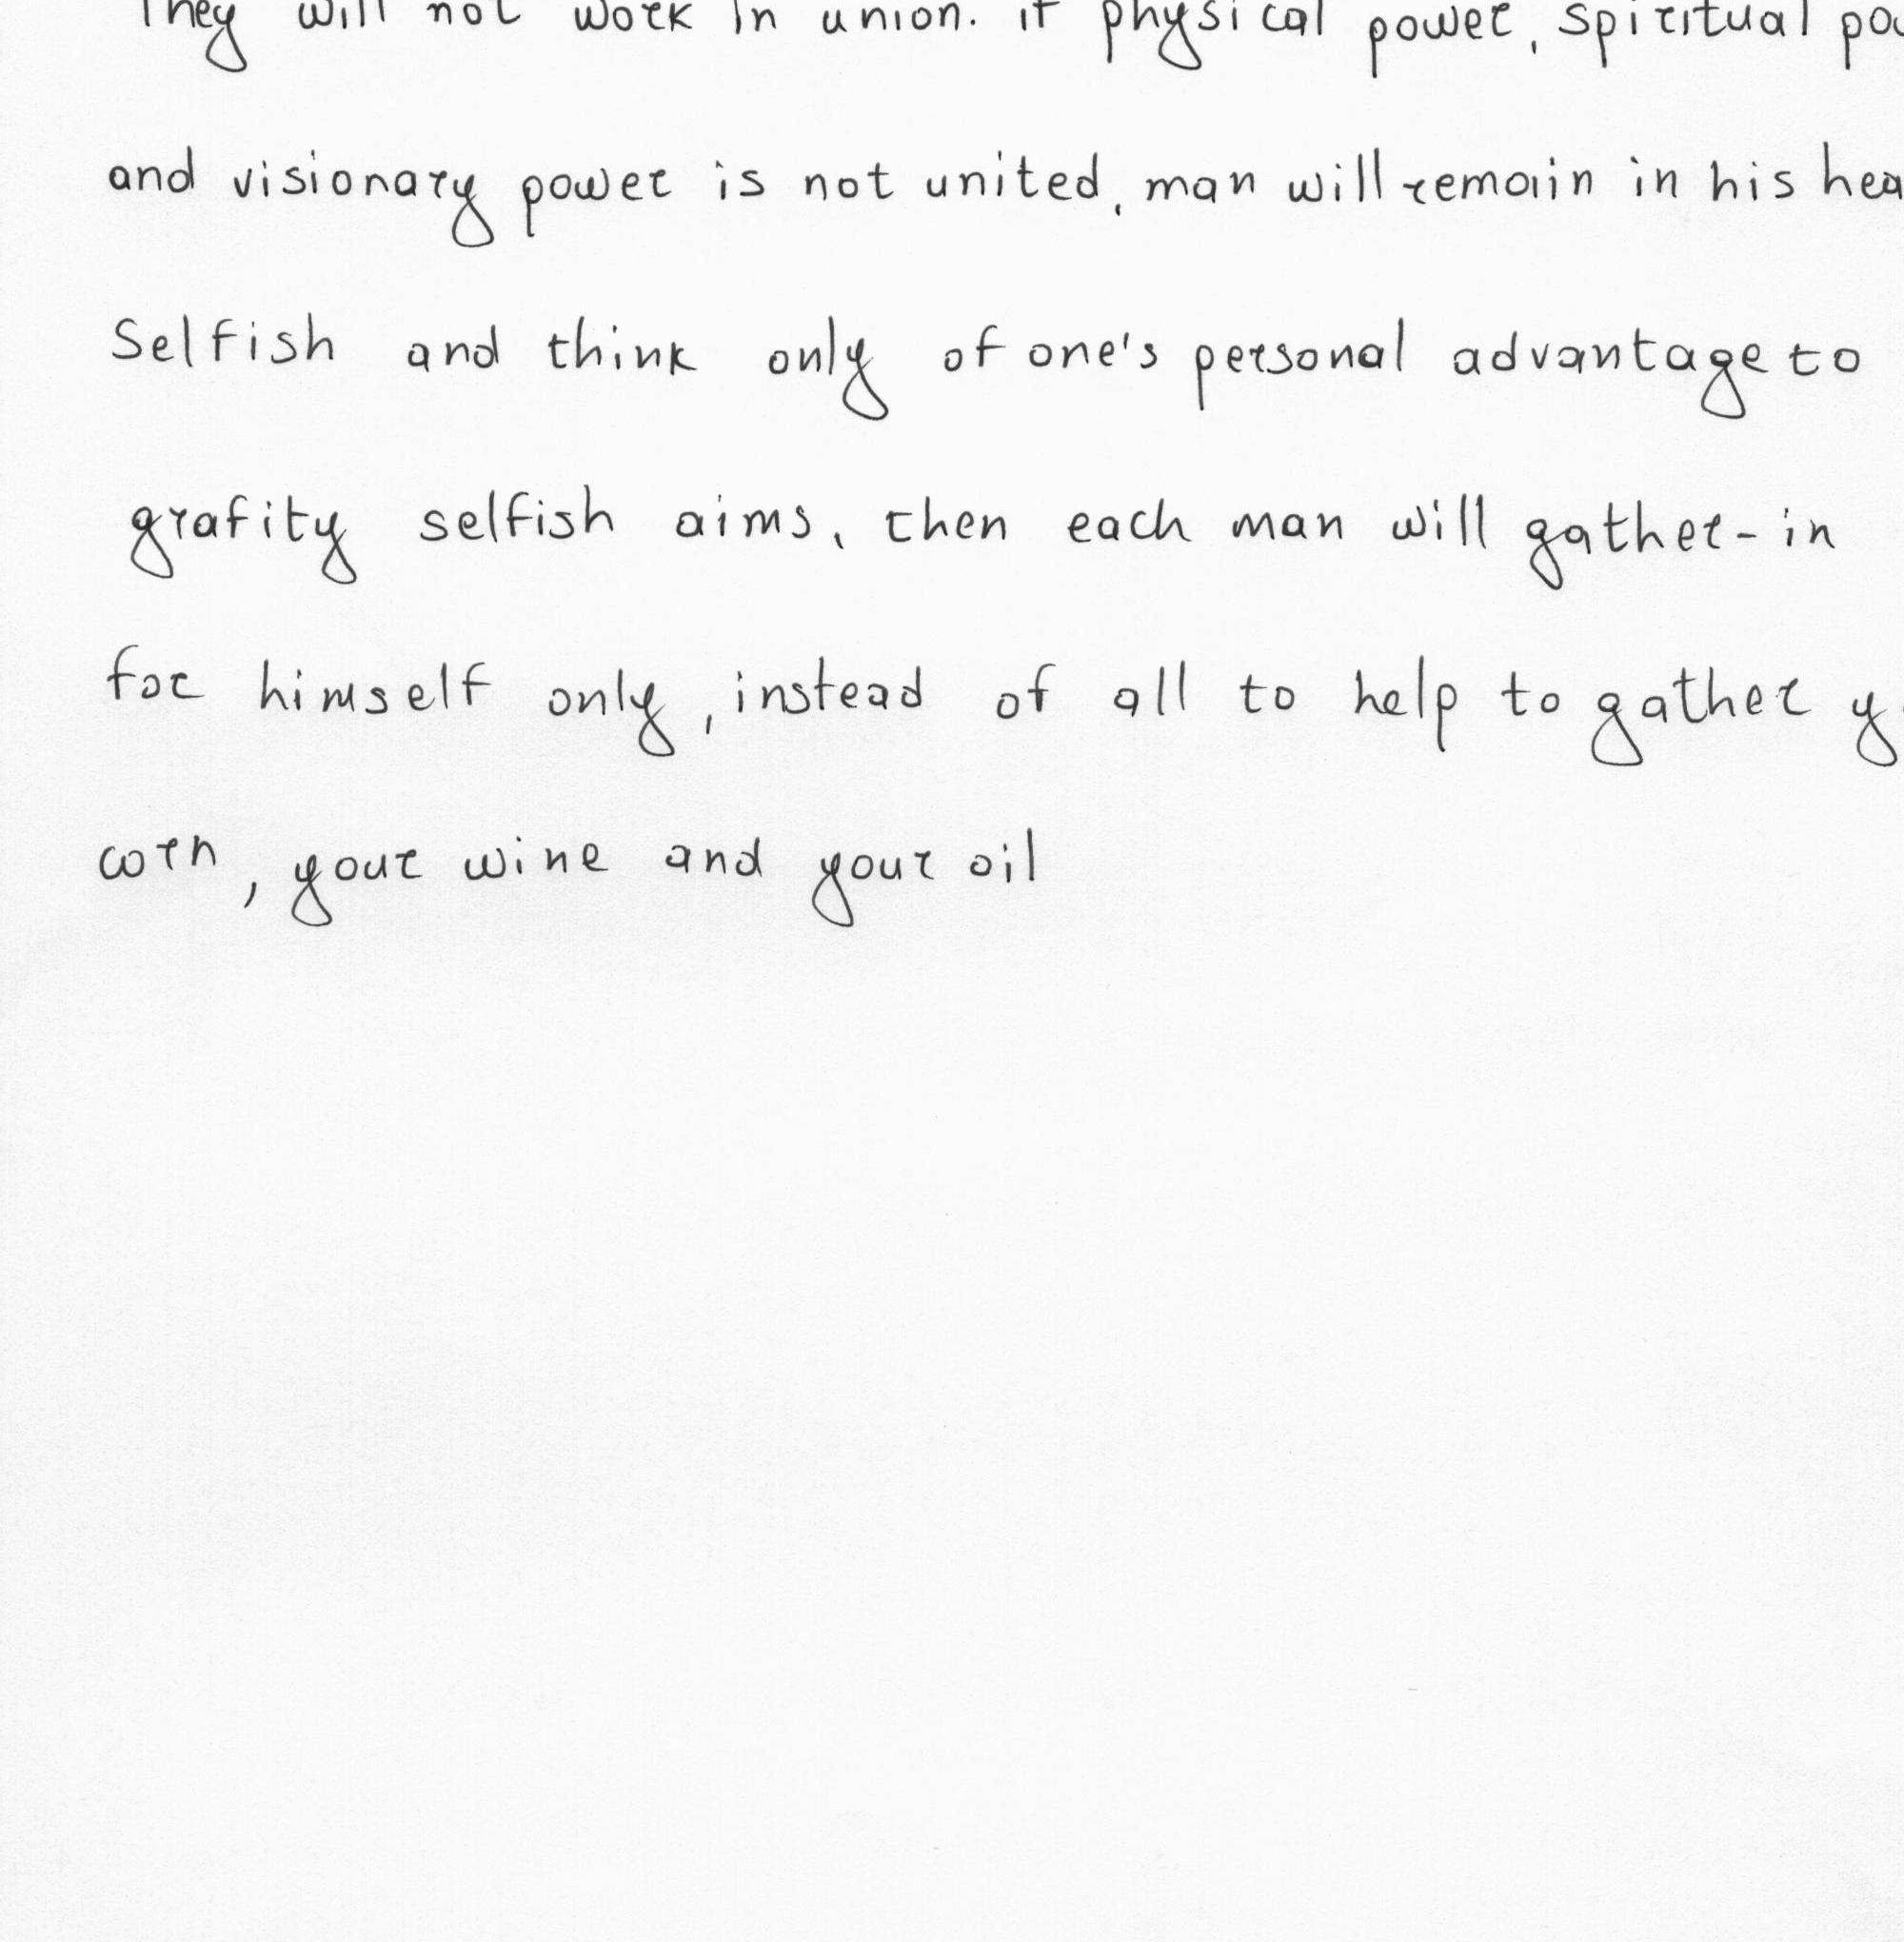 They will not work in union. if physical power, spiritual
and visionary power is not united, man will remain in his
Selfish and think only of one's personal advantage to
grafity selfish aims, then each man will gather-in
for himself only, instead of all to help to gather
corn, your wine and your oil